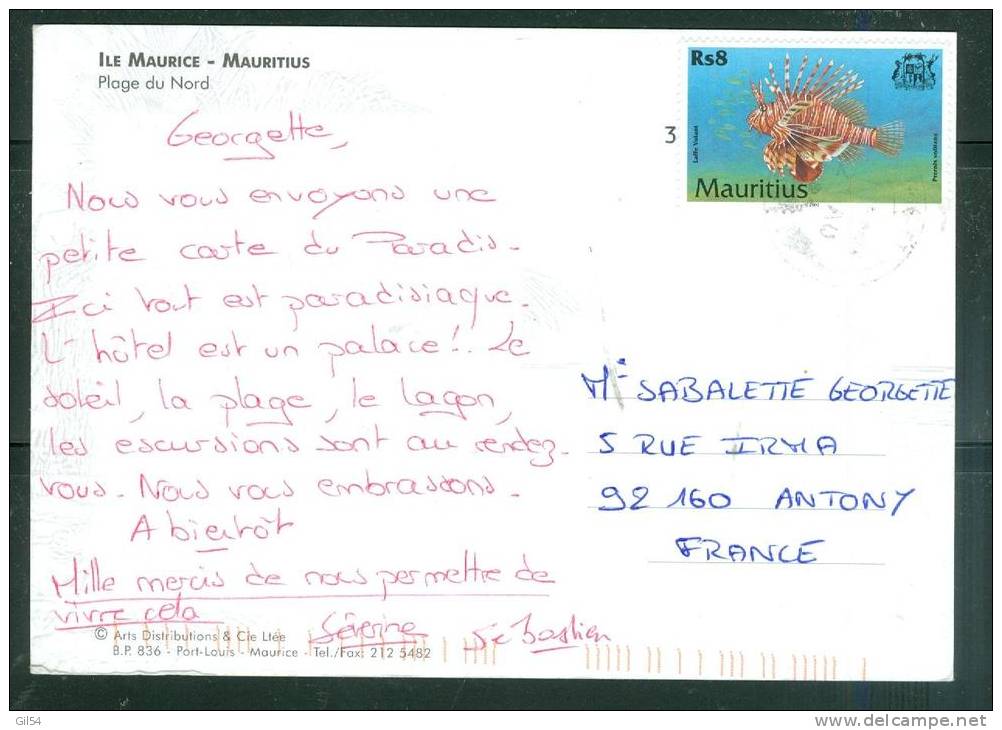 ILE MAURICE - MAURITIUS
Plage du Nord
Rs8
Laffe Volant
Pterois volitans
Mauritius
3
Georgette,
Nous vous envoyons une
petite carte du Paradis.
Ici tout est paradisiaque.
L'hôtel est un palace!. Le
soleil, la plage, le lagon,
les escursions sont au rendez-
vous. Nous vous embrassons.
A bientôt
Mille mercis de nous permettre de
vivre cela
Séverine Sébastien
Me SABALETTE GEORGETTE
5 RUE IRMA
92 160 ANTONY
FRANCE
© Arts Distributions & Cie Ltée
B.P. 836 - Port-Louis - Maurice - Tel./Fax: 212 5482
Gil54
www.delcampe.net